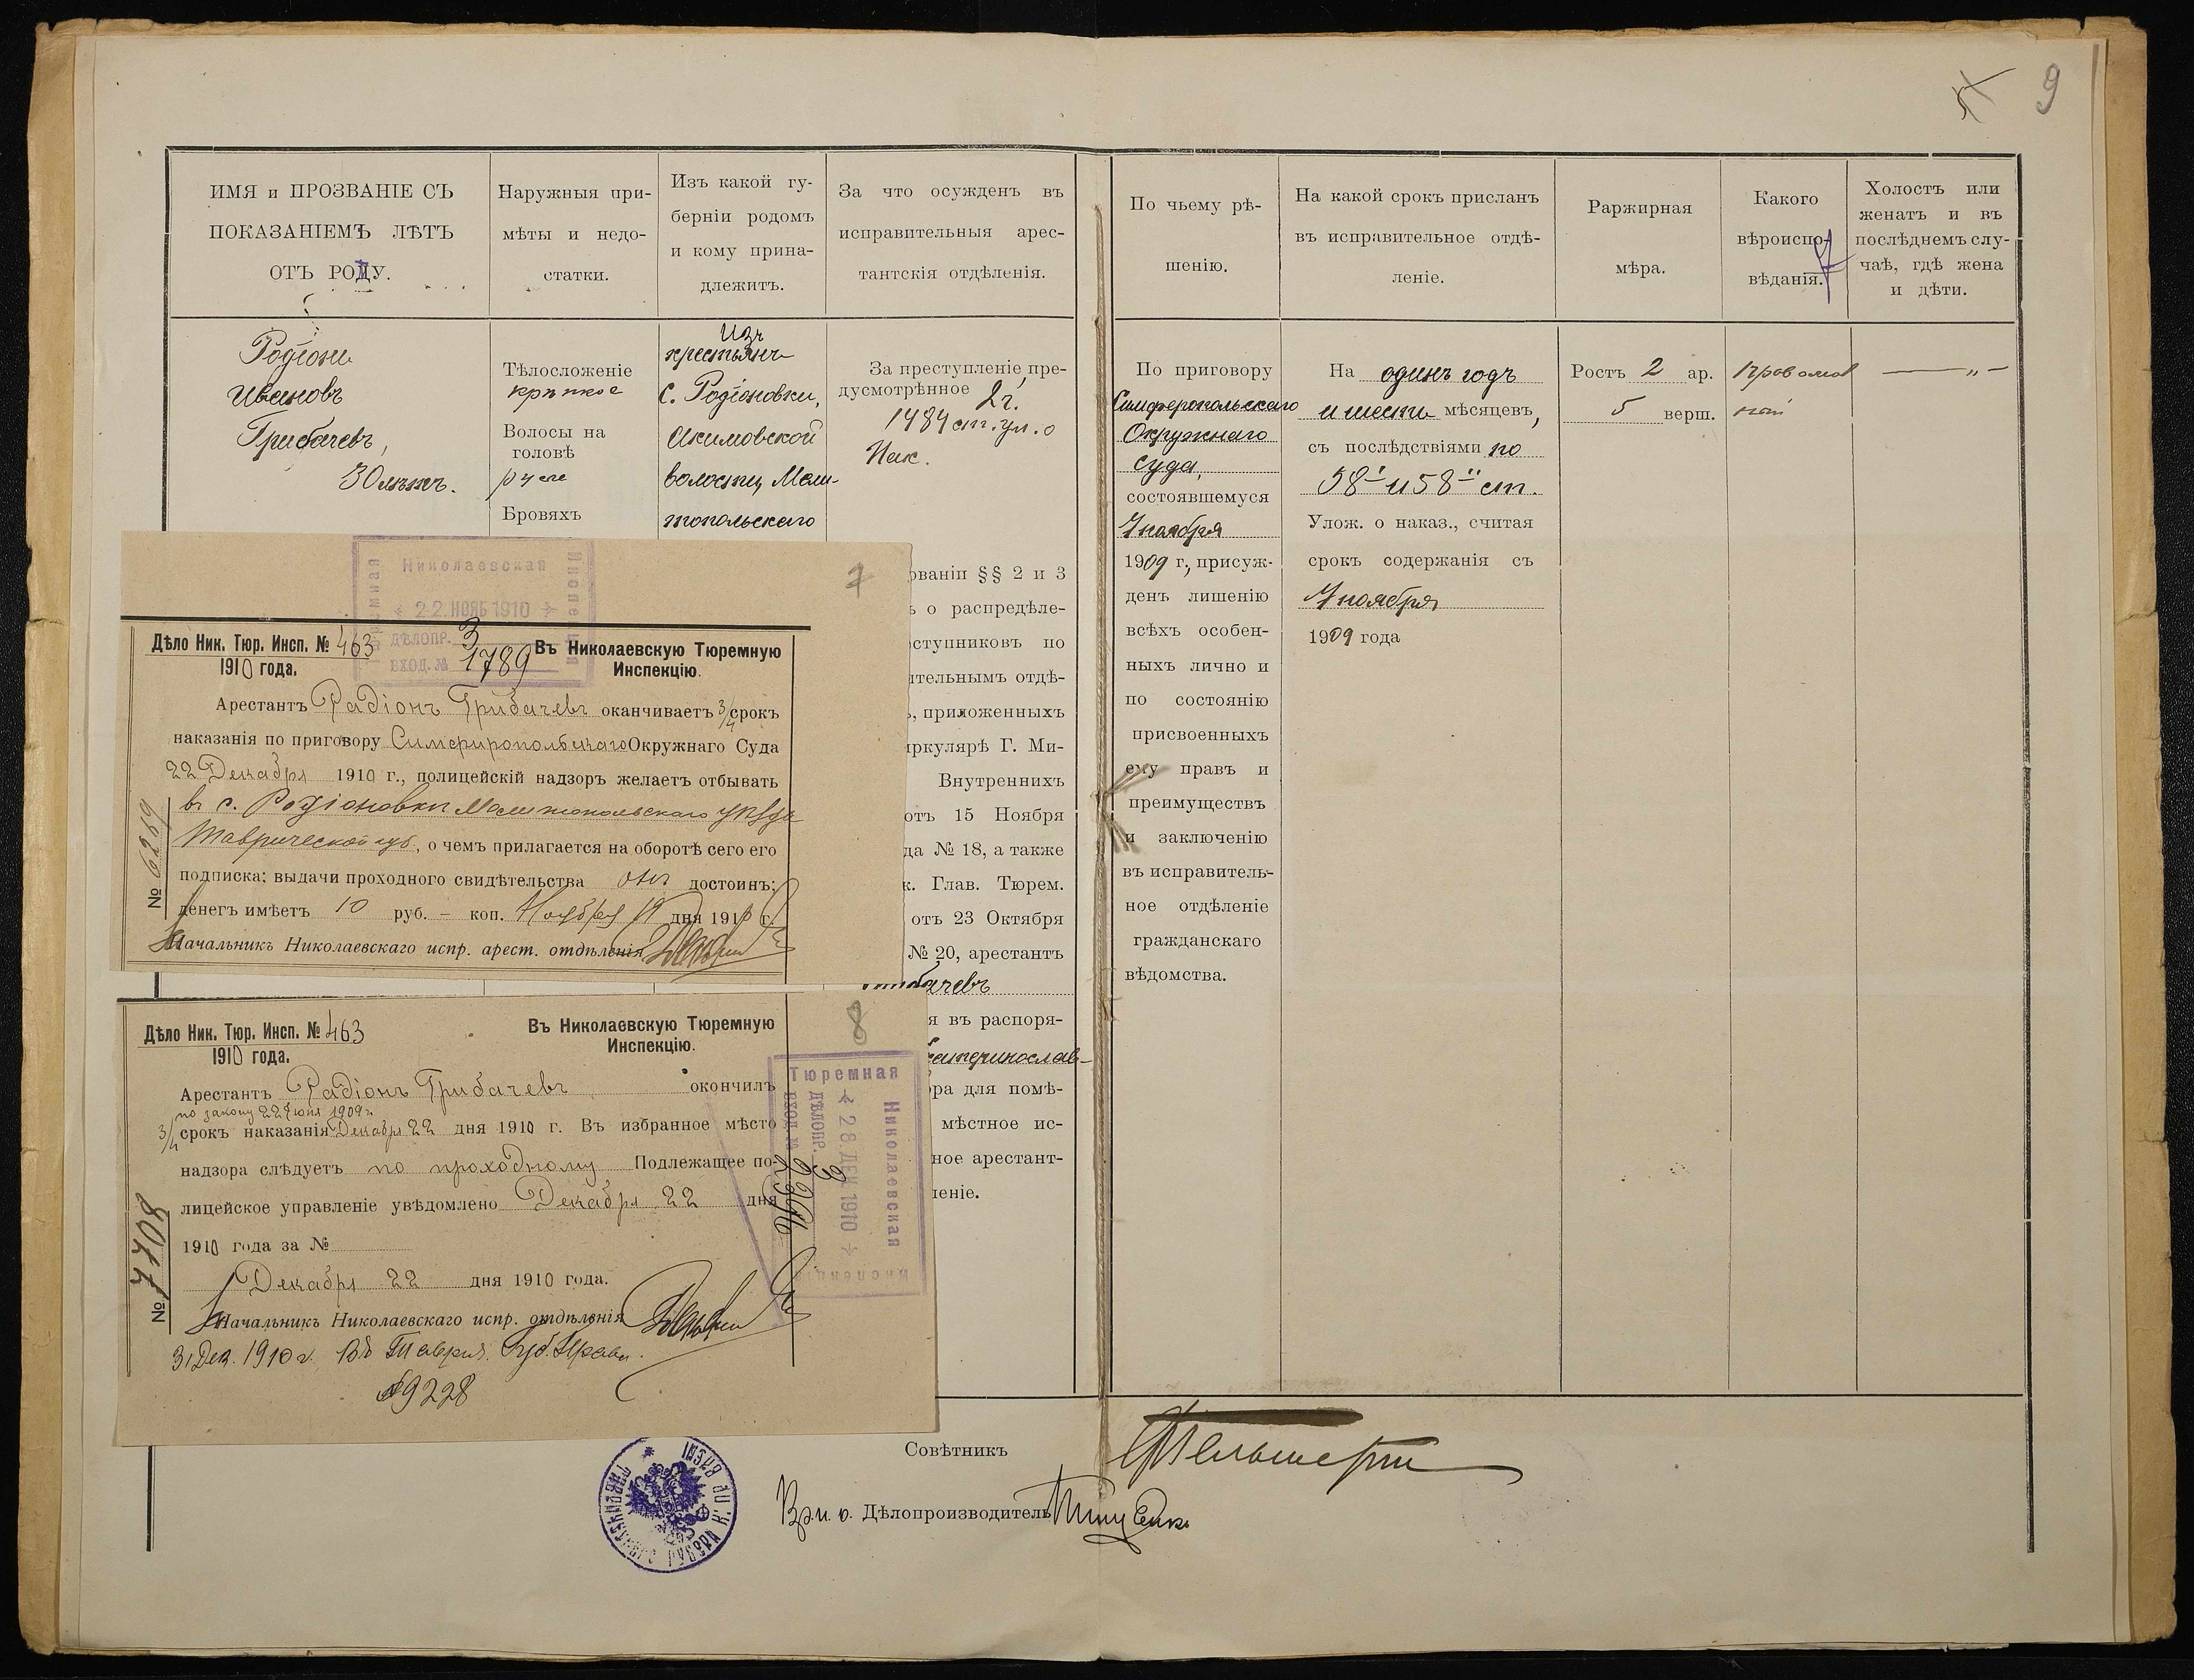 9
ИМЯ и ПРОЗВАНІЕ СЪ
ПОКАЗАНІЕМЪ ЛѢТЪ
ОТЪ РОДУ.
Наружныя при-
мѣты и недо-
статки.
Изъ какой гу-
берніи родомъ
и кому прина-
длежитъ.
За что осужденъ въ
исправительныя арес-
тантскія отдѣленія.
По чьему рѣ-
шенію.
На какой срокъ присланъ
въ исправительное отдѣ-
леніе.
Раржирная
мѣра.
Какого
вѣроиспо-
вѣданія.
Холостъ или
женатъ и въ
послѣднемъ слу-
чаѣ, гдѣ жена
и дѣти.
Родіонъ
Ивановъ
Грибачевъ,
30 лѣтъ.
Тѣлосложеніе
крѣпкое
Волосы на
головѣ
русые
Бровяхъ
Изъ
крестьянъ
с. Родіоновки,
Акимовской
волости, Мели-
топольскаго
За преступленіе, пре-
дусмотрѣнное 2 ч.
1484 ст. ул. о
Нак.
ованіи §§ 2 и 3
ъ о распредѣле-
ступниковъ по
ительнымъ отдѣ-
, приложенныхъ
иркулярѣ Г. Ми-
Внутреннихъ
отъ 15 Ноября
да № 18, а также
к. Глав. Тюрем.
отъ 23 Октября
№ 20, арестантъ
Грибачевъ
я въ распоря-
Екатеринослав-
ора для помѣ-
мѣстное ис-
ное арестант-
леніе.
По приговору
Симферопольскаго
Окружнаго
суда,
состоявшемуся
7 ноября
1909 г., присуж-
денъ лишенію
всѣхъ особен-
ныхъ лично и
по состоянію
присвоенныхъ
ему правъ и
преимуществъ
и заключенію
въ исправитель-
ное отдѣленіе
гражданскаго
вѣдомства.
На одинъ годъ
и шесть мѣсяцевъ,
съ послѣдствіями по
58¹ и 58¹¹ ст.
Улож. о наказ., считая
срокъ содержанія съ
7 ноября
1909 года
Ростъ 2 ар.
5 верш.
православ
ной
— „ —
Николаевская
Тюремная
Инспекція
22 НОЯБ 1910
ДѢЛОПР. 3
ВХОД. № 1789
7
Дѣло Ник. Тюр. Инсп. № 463
1910 года.
Въ Николаевскую Тюремную
Инспекцію.
Арестантъ Радіонъ Грибачевъ оканчиваетъ 3/4 срокъ
наказанія по приговору Симфиропольскаго Окружнаго Суда
22 Декабря 1910 г., полицейскій надзоръ желаетъ отбывать
въ с. Родіоновки Мелитопольскаго уѣзда
Таврической губ., о чемъ прилагается на оборотѣ сего его
подписка; выдачи проходного свидѣтельства онъ достоинъ;
денегъ имѣетъ 10 руб. — коп. Ноября 19 дня 1910 г.
Начальникъ Николаевскаго испр. арест. отдѣленія
№ 6269
8
Дѣло Ник. Тюр. Инсп. № 463
1910 года.
Въ Николаевскую Тюремную
Инспекцію.
Арестантъ Радіонъ Грибачевъ окончилъ
по закону 22 Іюня 1909 г.
3/4 срокъ наказанія Декабря 22 дня 1910 г. Въ избранное мѣсто
надзора слѣдуетъ по проходному Подлежащее по-
лицейское управленіе увѣдомлено Декабря 22 дня
1910 года за №
Декабря 22 дня 1910 года.
Начальникъ Николаевскаго испр. отдѣленія
31 Дек. 1910 г. Въ Таврич. Губ. Правл.
№ 9228
Тюремная
Николаевская
Инспекція
28 ДЕК 1910
ДѢЛОПР. 3
ВХОД. №
Совѣтникъ
Вр. и. о. Дѣлопроизводитель